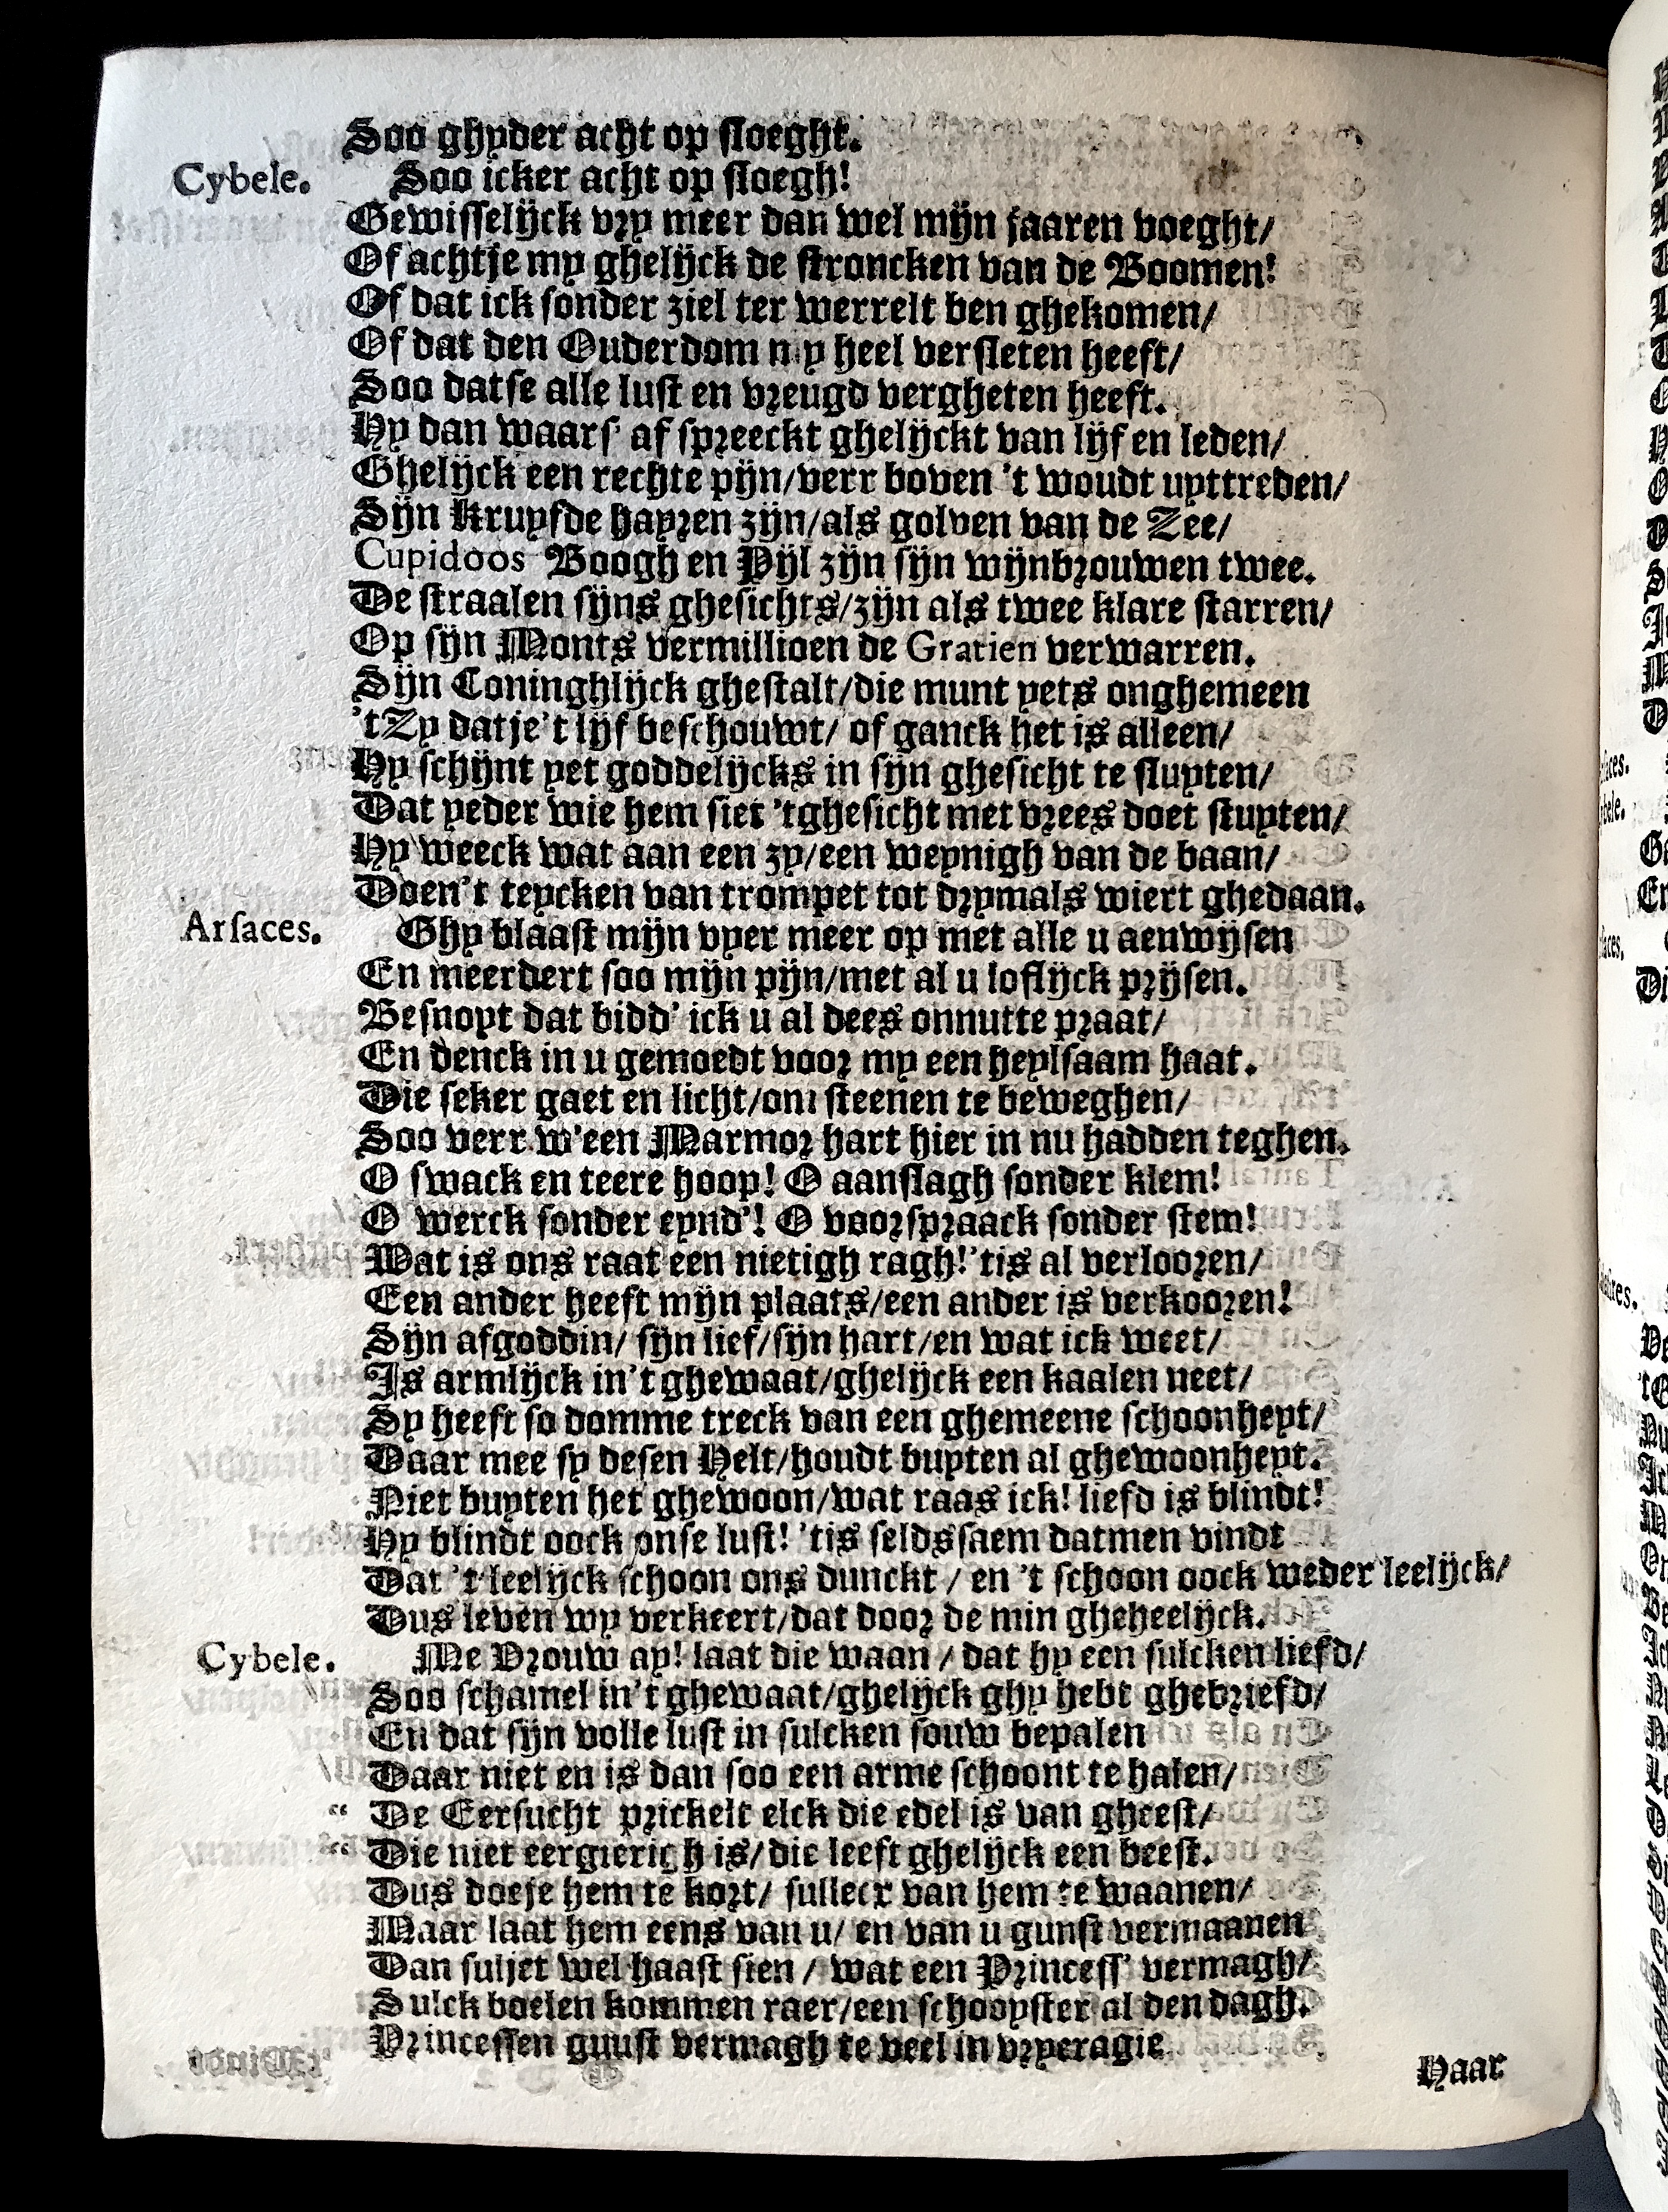 Soo ghyder acht op sloeght.
Cybele. Soo icker acht op sloegh!
Gewisselijck vry meer dan wel mijn jaaren voeght/
Of achtje my ghelijck de stroncken van de Boomen!
Of dat ick sonder ziel ter werrelt ben ghekomen/
Of dat den Ouderdom my heel versleten heeft/
Soo datse alle lust en vreugd vergheten heeft.
Hy dan waars' af spreeckt ghelijckt van lijf en leden/
Ghelijck een rechte pijn/verr boven 't woudt uyttreden/
Sijn kruysde hayren zijn/als golven van de Zee/
Cupidoos Boogh en Pijl zijn sijn wijnbrouwen twee.
De straalen sijns ghesichts/zijn als twee klare starren/
Op sijn Monts vermillioen de Gratien verwarren.
Sijn Coninghlijck ghestalt/die munt yets onghemeen
'tZy datje't lijf beschouwt/ of ganck het is alleen/
Hy schijnt yet goddelijcks in sijn ghesicht te sluyten/
Dat yeder wie hem siet 'tghesicht met vrees doet stuyten/
Hy weeck wat aan een zy/een weynigh van de baan/
Doen't teycken van trompet tot drymals wiert ghedaan.
Arsaces. Ghy blaast mijn vyer meer op met alle u aenwijsen
En meerdert soo mijn pijn/met al u loflijck prijsen.
Besnoyt dat bidd' ick u al dees onnutte praat/
En denck in u gemoedt voor my een heylsaam haat.
Die seker gaet en licht/om steenen te beweghen/
Soo verr w'een Marmor hart hier in nu hadden teghen.
O swack en teere hoop! O aanslagh sonder klem!
O werck sonder eynd'! O voorspraack sonder stem!
Wat is ons raat een nietigh ragh!'tis al verlooren/
Een ander heeft mijn plaats/een ander is verkooren!
Sijn afgoddin/ sijn lief/sijn hart/en wat ick weet/
Is armlijck in't ghewaat/ghelijck een kaalen neet/
Sy heeft so domme treck van een ghemeene schoonheyt/
Daar mee sy desen Helt/houdt buyten al ghewoonheyt.
Niet buyten het ghewoon/wat raas ick! liefd is blindt!
Hy blindt oock onse lust! 'tis seldssaem datmen vindt
Dat 't leelijck schoon ons dunckt / en 't schoon oock weder leelijck/
Dus leven wy verkeert/dat door de min gheheelijck.
Cybele. Me Vrouw ay! laat die waan / dat hy een sulcken liefd/
Soo schamel in't ghewaat/ghelijck ghy hebt ghebriefd/
En dat sijn volle lust in sulcken souw bepalen
Daar niet en is dan soo een arme schoont te halen/
“ De Eersucht prickelt elck die edel is van gheest/
“ Die niet eergierigh is/ die leeft ghelijck een beest.
Dus doeje hem te kort/ sulleex van hem te waanen/
Maar laat hem eens van u/ en van u gunst vermaanen
Dan suljet wel haast sien / wat een Princess' vermagh/
Sulck boelen kommen raer/een schooyster al den dagh.
Princessen gunst vermagh te veel in vryeragie
Haar